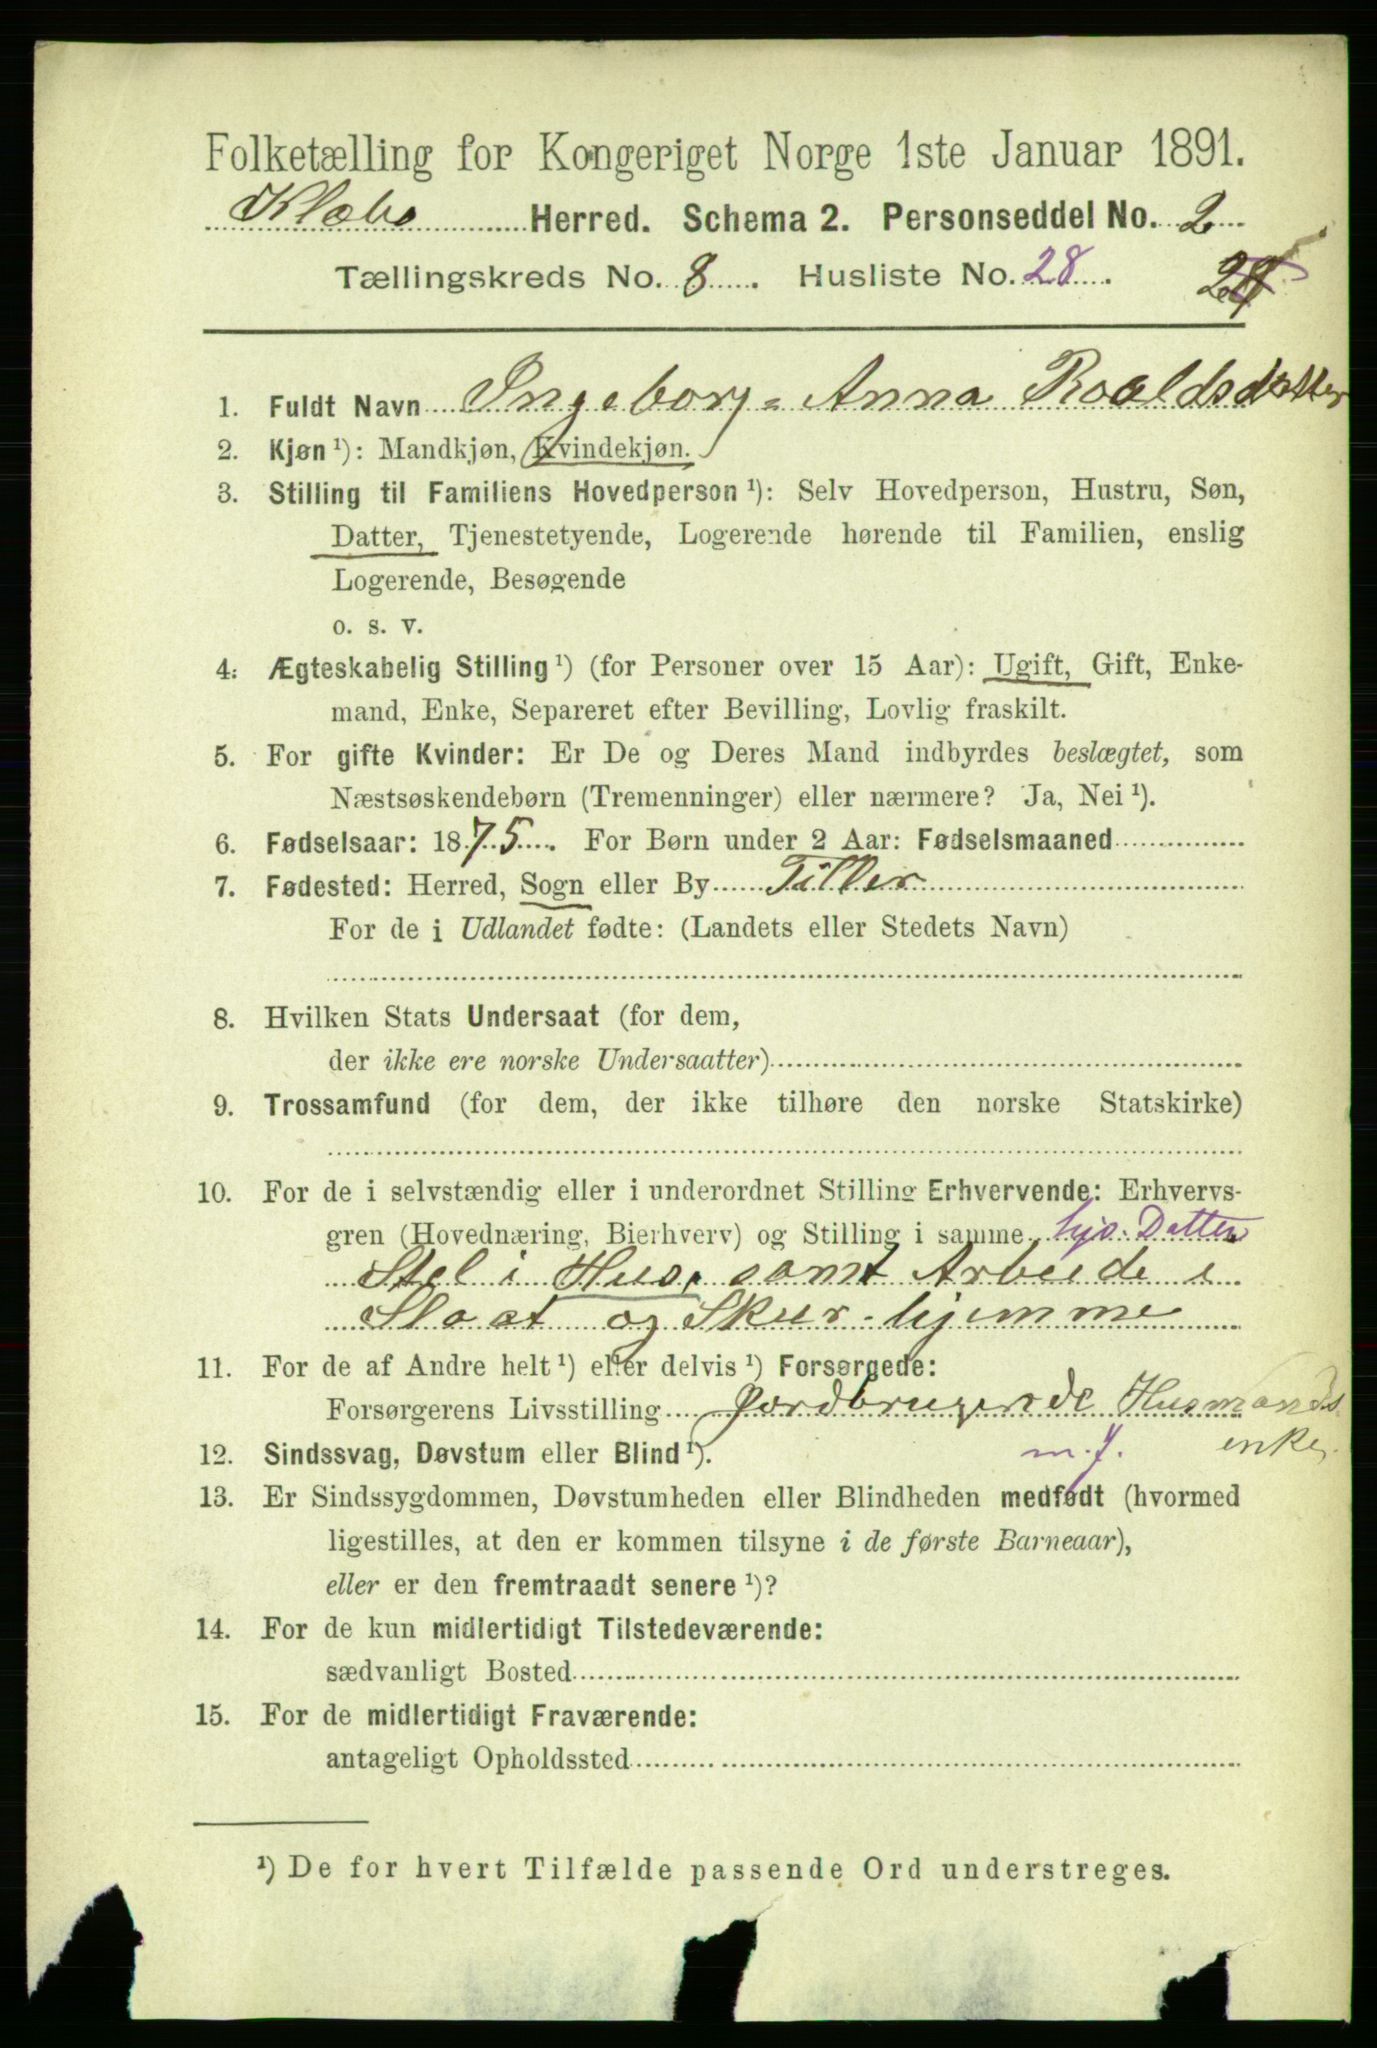 Folketælling for Kongeriget Norge 1ste Januar 1891.
Klæbo Herred. Schema 2. Personseddel No. 2
Tællingskreds No. 8. Husliste No. 28.
1. Fuldt Navn Ingeborg-Anna Roaldsdatter
2. Kjøn ¹): Mandkjøn, Kvindekjøn.
3. Stilling til Familiens Hovedperson ¹): Selv Hovedperson, Hustru, Søn,
Datter, Tjenestetyende, Logerende hørende til Familien, enslig
Logerende, Besøgende
o. s. v.
4. Ægteskabelig Stilling ¹) (for Personer over 15 Aar): Ugift, Gift, Enke-
mand, Enke, Separeret efter Bevilling, Lovlig fraskilt.
5. For gifte Kvinder: Er De og Deres Mand indbyrdes beslægtet, som
Næstsøskendebørn (Tremenninger) eller nærmere? Ja, Nei ¹).
6. Fødselsaar: 1875. For Børn under 2 Aar: Fødselsmaaned
7. Fødested: Herred, Sogn eller By Tiller
For de i Udlandet fødte: (Landets eller Stedets Navn)
8. Hvilken Stats Undersaat (for dem,
der ikke ere norske Undersaatter)
9. Trossamfund (for dem, der ikke tilhøre den norske Statskirke)
10. For de i selvstændig eller i underordnet Stilling Erhvervende: Erhvervs-
gren (Hovednæring, Bierhverv) og Stilling i samme hjv. Datter
Stel i Hus, samt Arbeide i
Slaat og Skur hjemme
11. For de af Andre helt ¹) eller delvis ¹) Forsørgede:
Forsørgerens Livsstilling Jordbrugende Husmands
enke,
12. Sindssvag, Døvstum eller Blind ¹).
13. Er Sindssygdommen, Døvstumheden eller Blindheden medfødt (hvormed
ligestilles, at den er kommen tilsyne i de første Barneaar),
eller er den fremtraadt senere ¹)?
14. For de kun midlertidigt Tilstedeværende:
sædvanligt Bosted
15. For de midlertidigt Fraværende:
antageligt Opholdssted
¹) De for hvert Tilfælde passende Ord understreges.